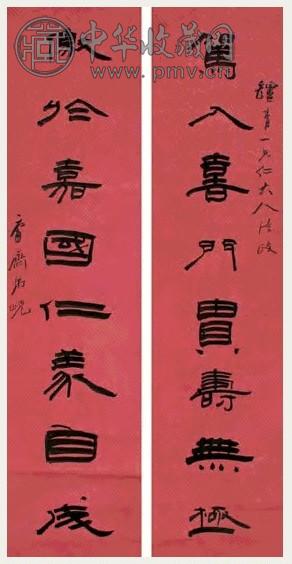 中华收藏网
www.pmv.cn
入喜門貴壽無極
青一兄仁大人法政
於嘉國仁義自成